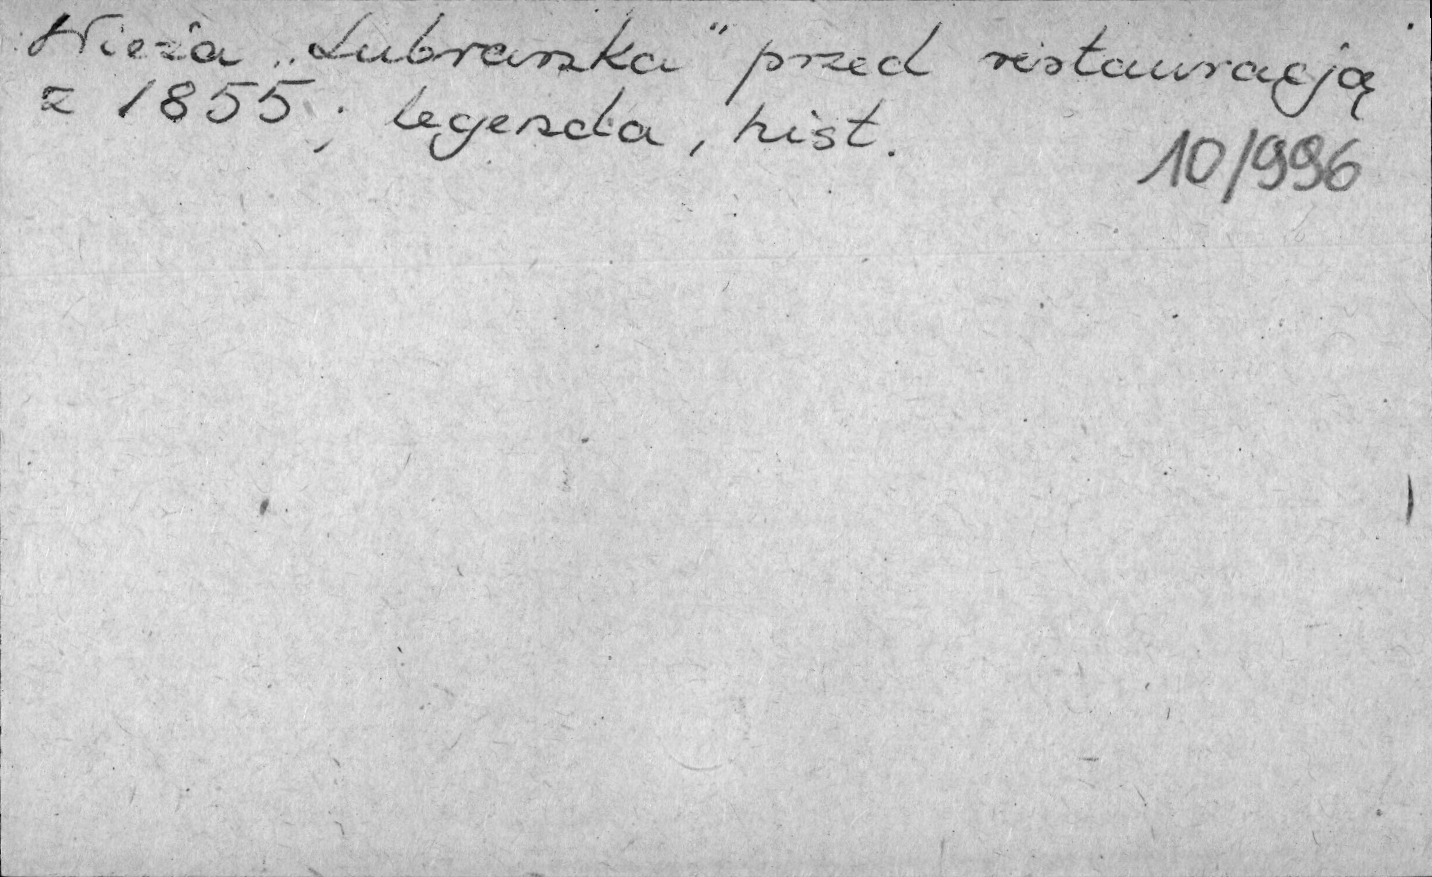 Wieża „Lubranska" przed restauracją
z 1855; legenda, hist.
10/996